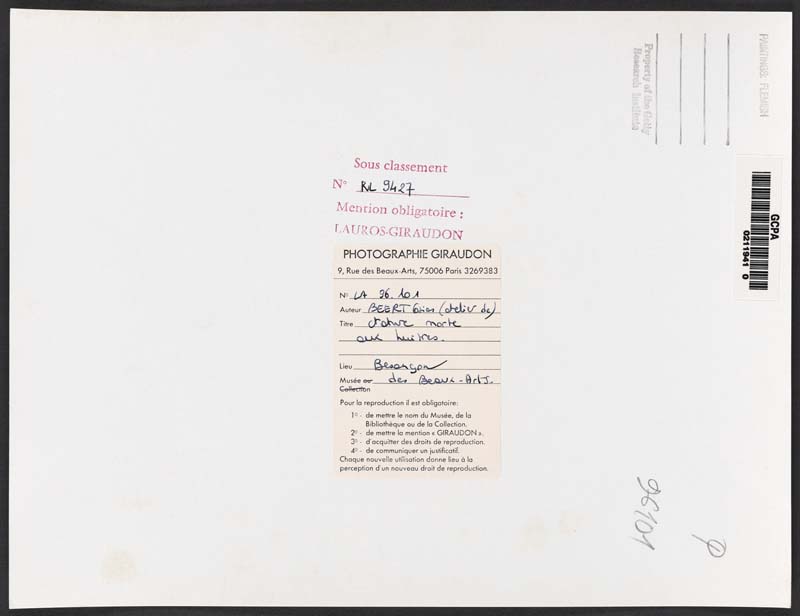 PAINTINGS: FLEMISH
Property of the Getty
Research Institute
GCPA
0211941 0
Sous classement
N° RL 9427
Mention obligatoire :
LAUROS-GIRAUDON
PHOTOGRAPHIE GIRAUDON
9, Rue des Beaux-Arts, 75006 Paris 3269383
N° LA 96.101
Auteur BEERT Osias (atelier de)
Titre Nature morte
aux huitres.
Lieu Besançon
Musée ou des Beaux-Arts.
Collection
Pour la reproduction il est obligatoire:
1° - de mettre le nom du Musée, de la
Bibliothèque ou de la Collection.
2° - de mettre la mention « GIRAUDON ».
3° - d'acquitter des droits de reproduction.
4° - de communiquer un justificatif.
Chaque nouvelle utilisation donne lieu à la
perception d'un nouveau droit de reproduction.
96101
P